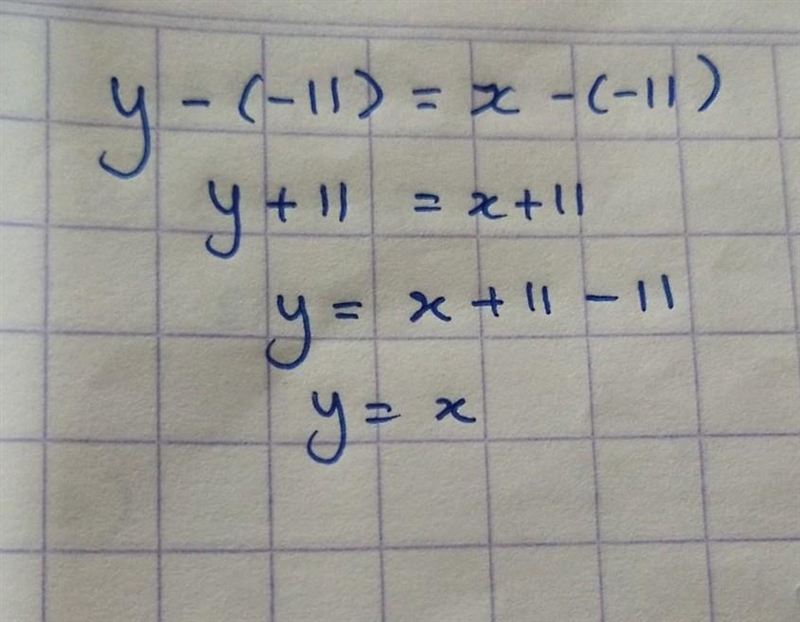 y - (-11) = x - (-11)
y + 11 = x + 11
y = x + 11 - 11
y = x